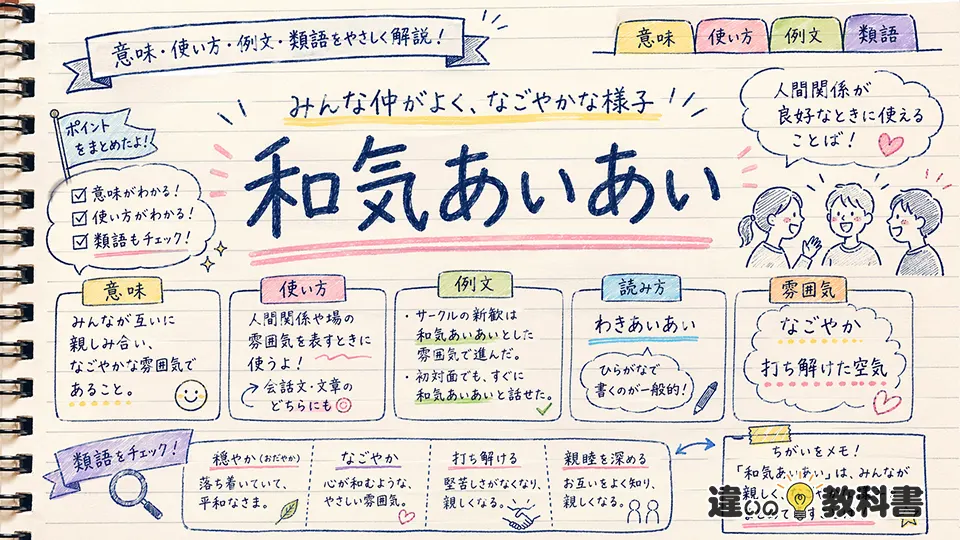 意味・使い方・例文・類語をやさしく解説！
意味
使い方
例文
類語
みんな仲がよく、なごやかな様子
人間関係が
良好なときに使える
ことば！
ポイント
をまとめたよ！
意味がわかる！
使い方がわかる！
類語もチェック！
和気あいあい
意味
みんなが互いに
親しみ合い、
なごやかな雰囲気で
あること。
使い方
人間関係や場の
雰囲気を表すときに
使うよ！
会話文・文章の
どちらにも◎
例文
・サークルの新歓は
和気あいあいとした
雰囲気で進んだ。
・初対面でも、すぐに
和気あいあいと話せた。
読み方
わきあいあい
ひらがなで
書くのが一般的！
雰囲気
なごやか
打ち解けた空気
類語をチェック！
穏やか（おだやか）
落ち着いていて、
平和なさま。
なごやか
心が和むような、
やさしい雰囲気。
打ち解ける
堅苦しさがなくなり、
親しくなる。
親睦を深める
お互いをよく知り、
親しくなる。
ちがいをメモ！
「和気あいあい」は、みんなが
親しく、
違いの教科書